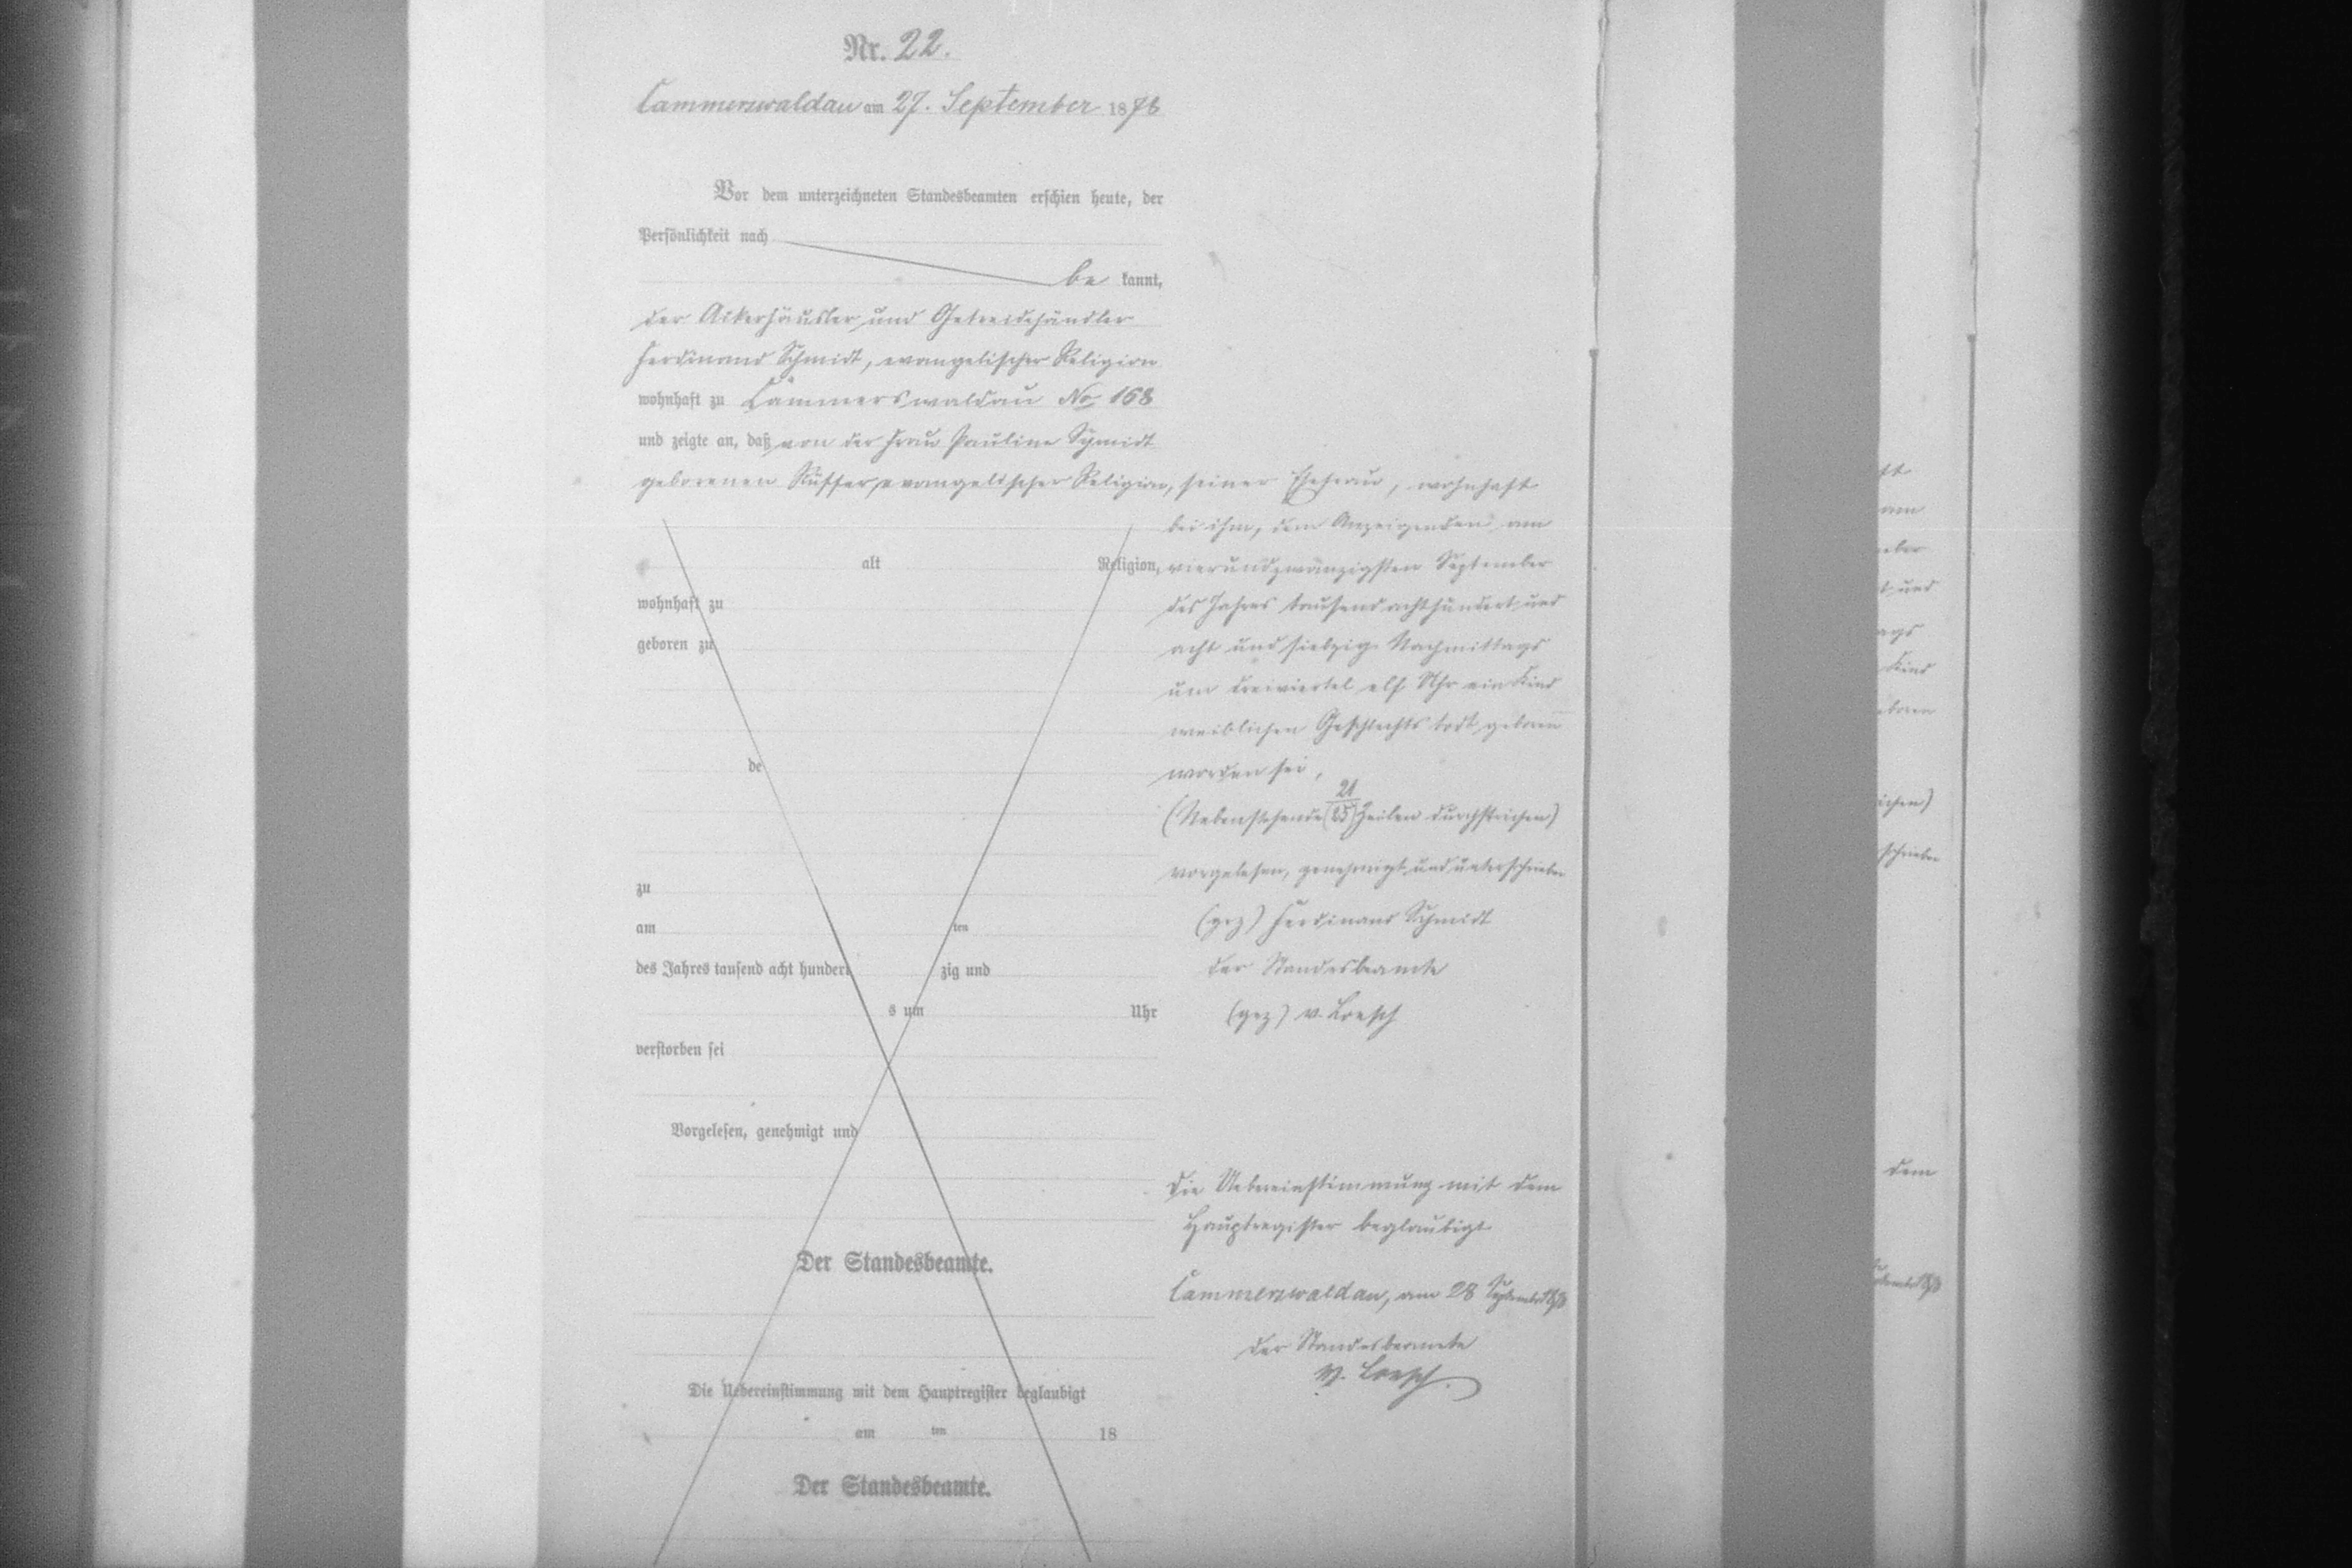 Nr. 22.
Cammerswaldau am 27. September 1878
Vor dem unterzeichneten Standesbeamten erschien heute, der
Persönlichkeit nach
be kannt,
der Ackerhäusler und Getreidehändler
Ferdinand Schmidt, evangelischer Religion
wohnhaft zu Cammerswaldau No 168
und zeigte an, daß von der Frau Pauline Schmidt
geborenen Rüffer, evangelischer Religion, seiner Ehefrau, wohnhaft
bei ihm, dem Anzeigenden am
alt Religion, vierundzwanzigsten September
wohnhaft zu des Jahres tausend achthundert und
geboren zu acht und siebzig Nachmittags
um dreiviertel elf Uhr ein Kind
weiblichen Geschlechts todt geboren
de worden sei,
21
(Nebenstehende (25) Zeilen durchstrichen)
zu vorgelesen, genehmigt und unterschrieben
am ten (gez) Ferdinand Schmidt
des Jahres tausend acht hundert zig und der Standesbeamte
s um Uhr (gez) v. Loesch
verstorben sei
Vorgelesen, genehmigt und
die Uebereinstimmung mit dem
Hauptregister beglaubigt
Der Standesbeamte.
Cammerswaldau, am 28 September 1878
der Standesbeamte
v. Loesch.
Die Uebereinstimmung mit dem Hauptregister beglaubigt
am ten 18
Der Standesbeamte.